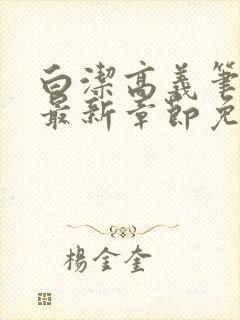 白潔高義筆
最新章節免
楊金奎